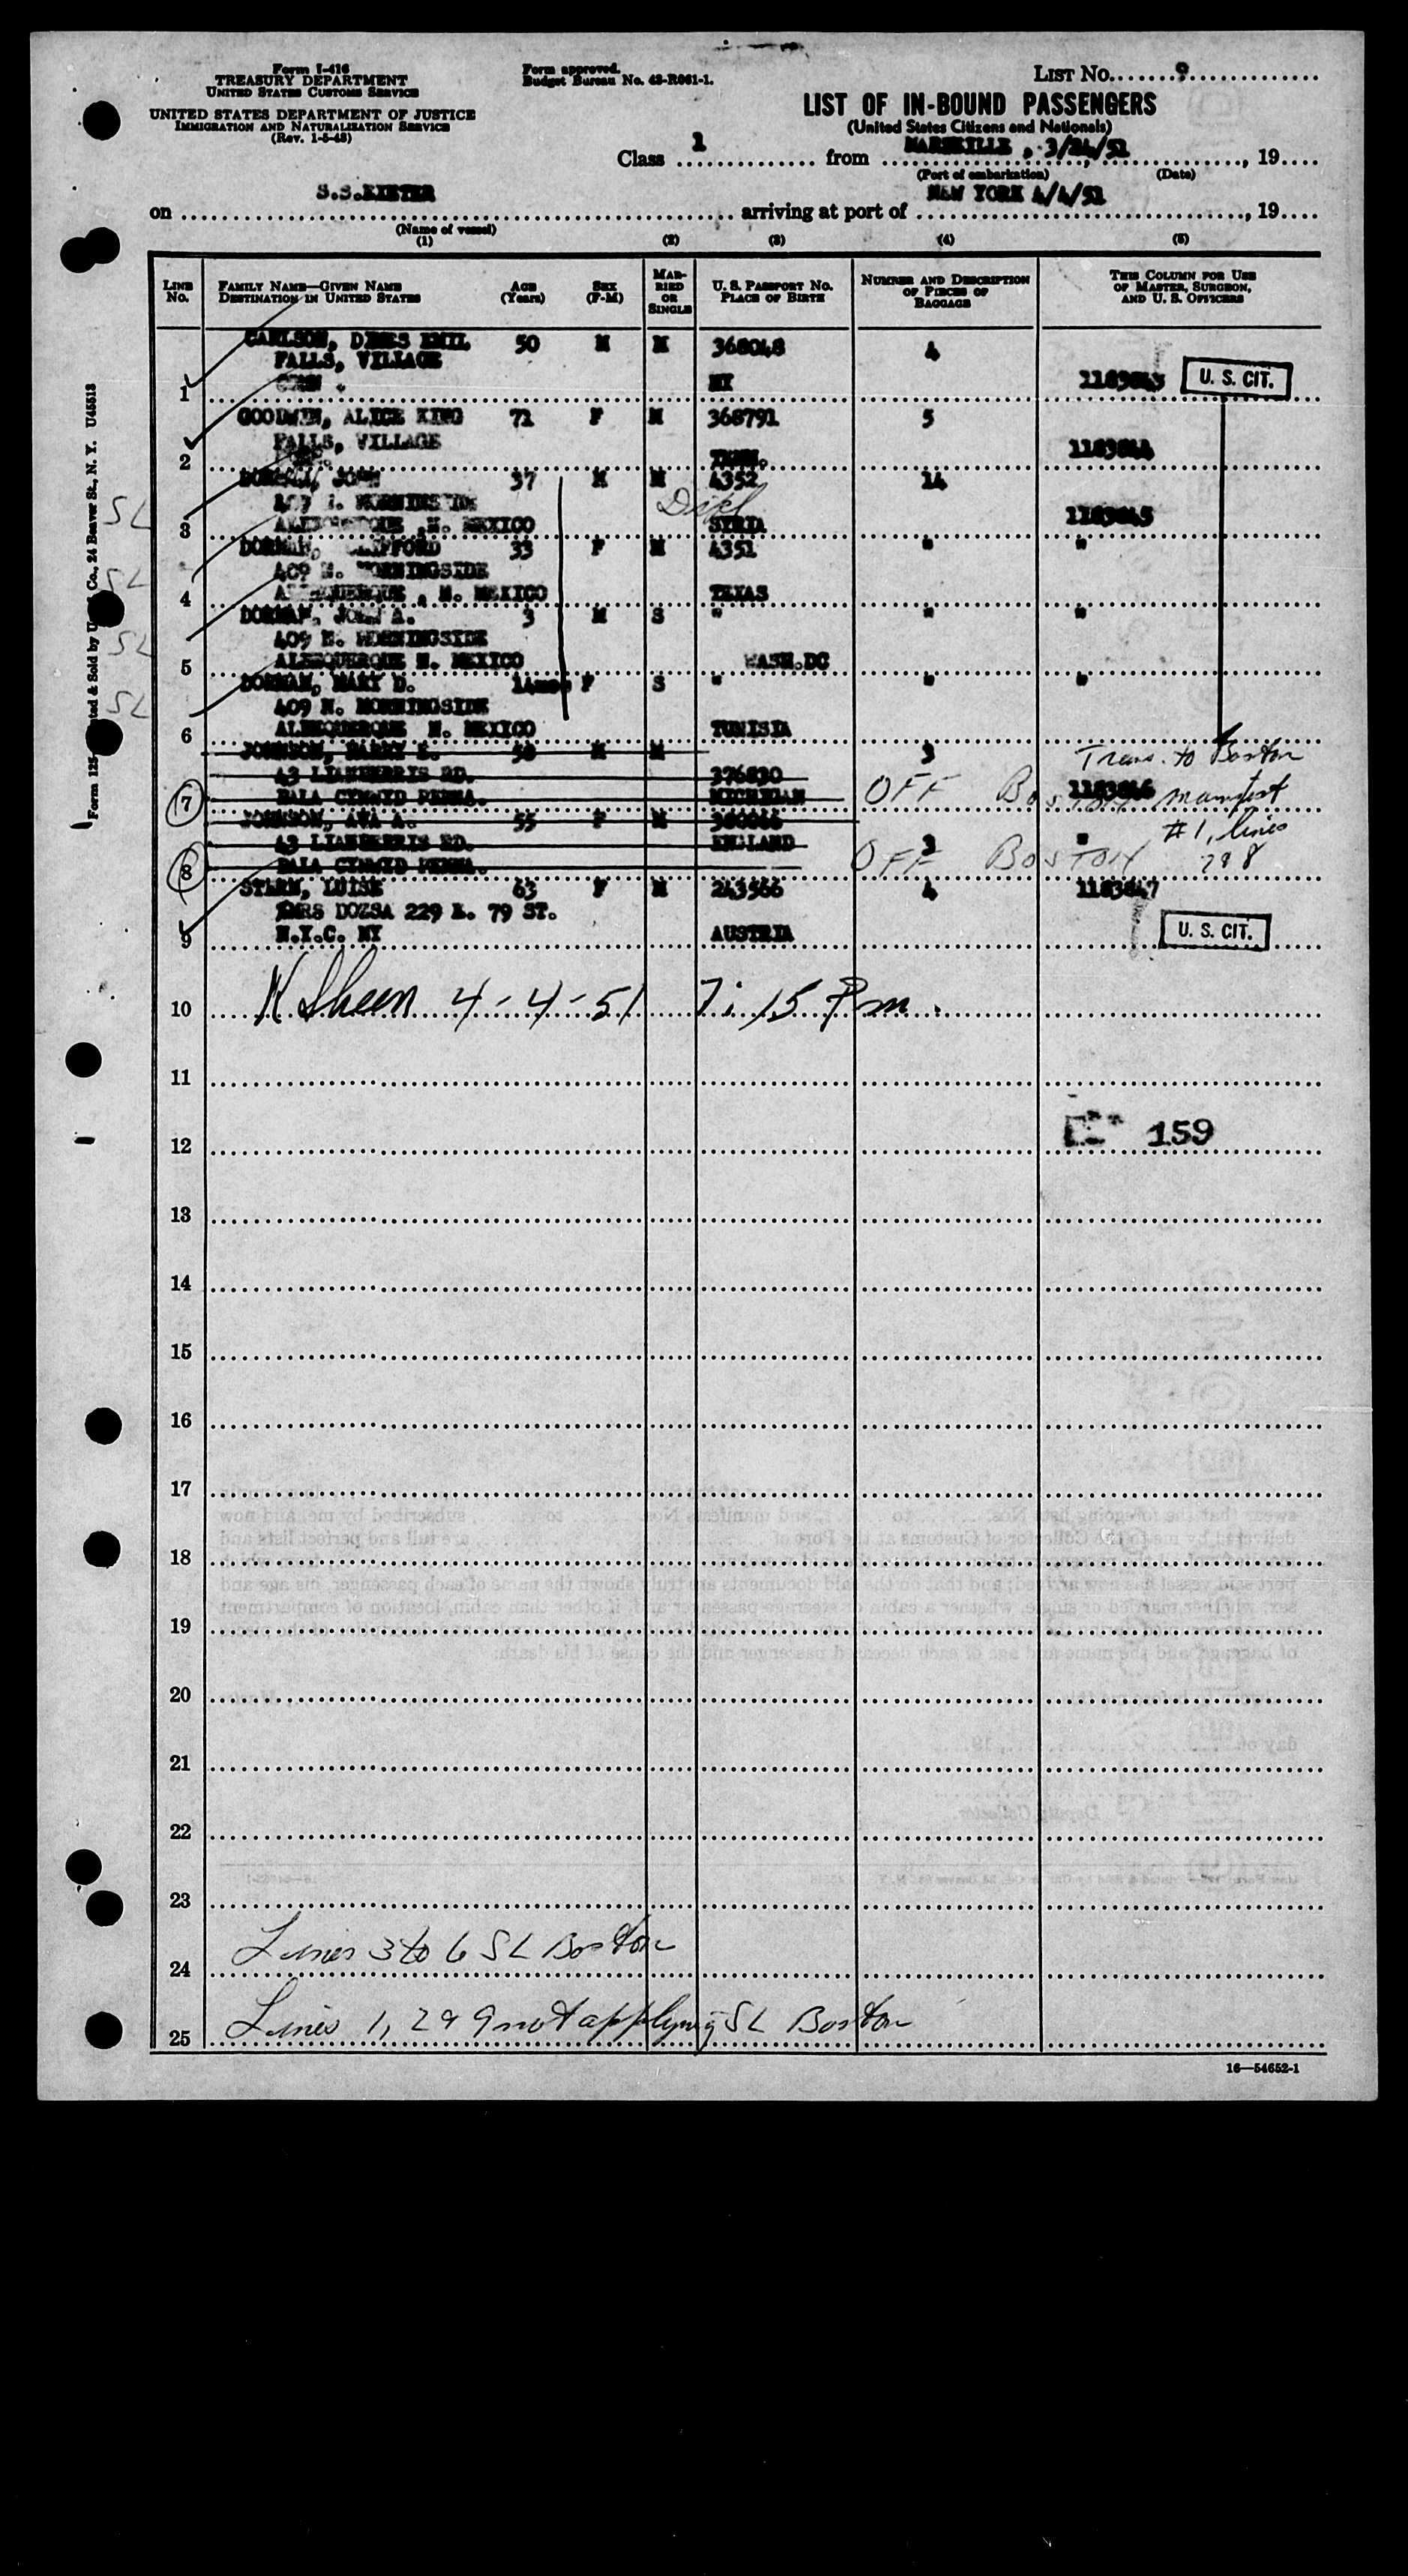 Form I-416
TREASURY DEPARTMENT
UNITED STATES CUSTOMS SERVICE
UNITED STATES DEPARTMENT OF JUSTICE
IMMIGRATION AND NATURALIZATION SERVICE
(Rev. 1-5-48)
Form approved.
Budget Bureau No. 43-R061-1.
LIST No. 9
LIST OF IN-BOUND PASSENGERS
(United States Citizens and Nationals)
Class 1 from MARSEILLE, 3/24/51, 19
(Port of embarkation) (Date)
on S.S.EXETER arriving at port of NEW YORK 4/4/51, 19
(Name of vessel)
(1) (2) (3) (4) (5)
LINE No. FAMILY NAME—GIVEN NAME DESTINATION IN UNITED STATES AGE (Years) SEX (F-M) MARRIED OR SINGLE U. S. PASSPORT NO. PLACE OF BIRTH NUMBER AND DESCRIPTION OF PIECES OF BAGGAGE THIS COLUMN FOR USE OF MASTER, SURGEON, AND U. S. OFFICERS
CARLSON, EMIL 50 M M 368048 4
FALLS, VILLAGE
1 CONN. NY 1183843 U. S. CIT.
GOODWIN, ALICE KING 71 F M 368791 5
FALLS, VILLAGE
2 TENN. 1183844
DORMAN, JOHN 37 M M 4352 14
409 N. MORNINGSIDE
SL 3 ALBUQUERQUE, N. MEXICO SYRIA 1183845
DORMAN, 33 F M 4351 " "
409 N. MORNINGSIDE
SL 4 ALBUQUERQUE, N. MEXICO TEXAS
DORMAN, JOHN A. 3 M S " " "
409 N. MORNINGSIDE
SL 5 ALBUQUERQUE N. MEXICO WASH.DC
DORMAN, MARY D. 14mos F S " " "
409 N. MORNINGSIDE
SL 6 ALBUQUERQUE N. MEXICO TUNISIA
JOHNSON, HARRY M M 3 Trans. to Boston
43 LLANBERRIS RD. 376830
7 BALA CYNWYD PENNA. MICHIGAN OFF BOSTON 1183846 manifest
JOHNSON, AVA A. 55 F M #1, lines
43 LLANBERRIS RD. ENGLAND 3 "
8 BALA CYNWYD PENNA. OFF BOSTON 7 & 8
STERN, LUISE 63 F M 243566 4 1183847
MRS DOZSA 229 E. 79 ST.
9 N.Y.C. NY AUSTRIA U. S. CIT.
10 K Sheen 4-4-51 7:15 Pm.
11
12 159
13
14
15
16
17
18
19
20
21
22
23
24 Lines 3 to 6 SL Boston
25 Lines 1, 2 & 9 not applying SL Boston
16—54652-1